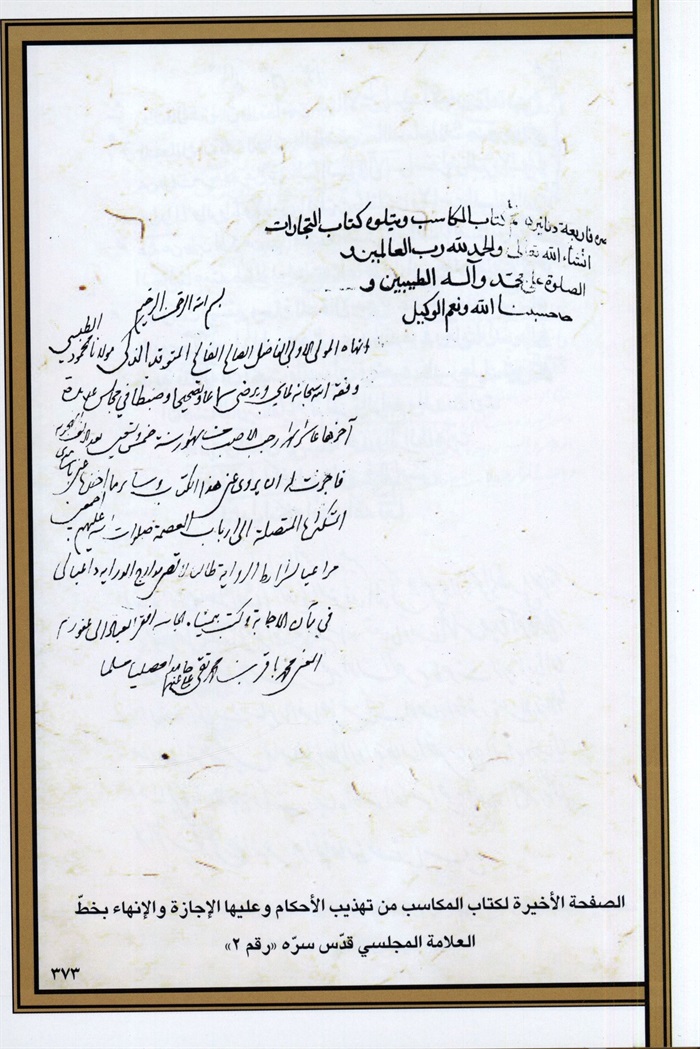 فاربعة دنانير تم كتاب المكاسب ويتلوه كتاب التجارات
انشاء الله تعالى والحمد لله رب العالمين
الصلوة على محمد وآله الطيبين و
حسبنا الله ونعم الوكيل
بسم الله الرحمن الرحيم
انهاه المولى الاولى الفاضل الصالح الفالح المتوقد الذكي مولانا محمود الطبسي
وفقه الله سبحانه لما يحب ويرضى سماعا وتصحيحا وضبطا في مجالس عديدة
آخرها عاشر شهر رجب الاصب من شهور سنة خمس وتسعين بعد الالف
فاجزت له ان يروي عني هذا الكتاب وسائر ما
المتصلة الى ارباب العصمة صلوات الله عليهم اجمعين
مراعيا لشرائط الرواية طالبا لاقصى مدارج الدراية داعيا لي
في مآن الاجابة وكتب بيمناه افقر العباد الى عفو ربه
الغني محمد باقر بن محمد تقي عفي عنهما حامدا مصليا مسلما
الصفحة الأخيرة لكتاب المكاسب من تهذيب الأحكام وعليها الإجازة والإنهاء بخطّ
العلامة المجلسي قدّس سرّه «رقم ٢»
٣٧٣